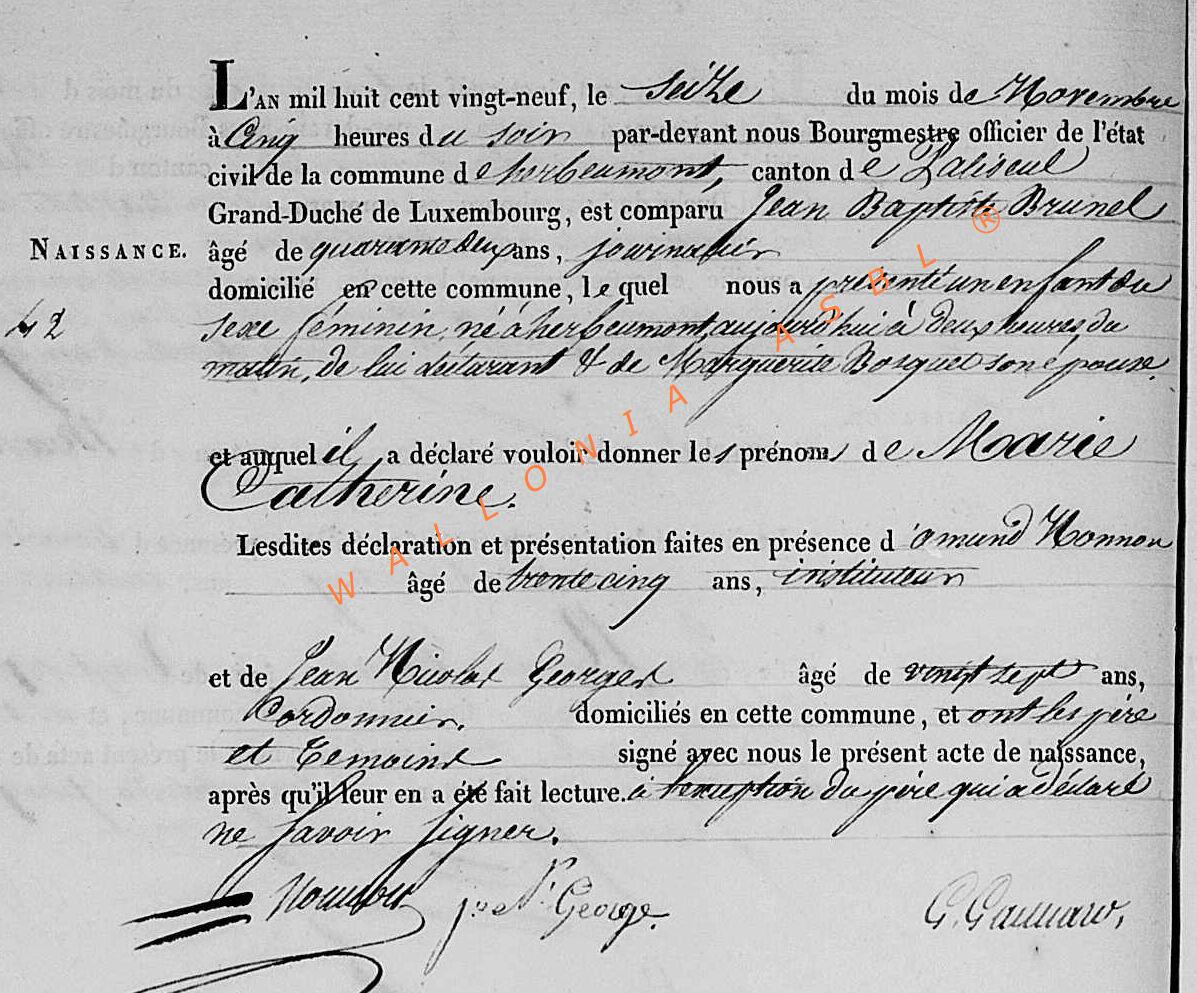 L'AN mil huit cent vingt-neuf, le seize du mois de Novembre
à Cinq heures du soir par-devant nous Bourgmestre officier de l'état
civil de la commune de herbeumont, canton de Paliseul
Grand-Duché de Luxembourg, est comparu Jean Baptiste Brunel
NAISSANCE. âgé de quarante deux ans, journalier
domicilié en cette commune, lequel nous a présenté un enfant du
42 sexe féminin, né à herbeumont, aujourd'hui à deux heures du
matin, de lui déclarant & de Marguerite Bosquet son épouse.
et auquel il a déclaré vouloir donner les prénoms de Marie
Catherine.
Lesdites déclaration et présentation faites en présence d'
âgé de trente cinq ans, instituteur
et de Jean Nicolas Georges âgé de vingt sept ans,
Cordonnier, domiciliés en cette commune, et ont les père
et Temoins signé avec nous le présent acte de naissance,
après qu'il leur en a été fait lecture. à l'exception du père qui a déclaré
ne savoir signer.
George. G.
WALLONIA ASBL ®